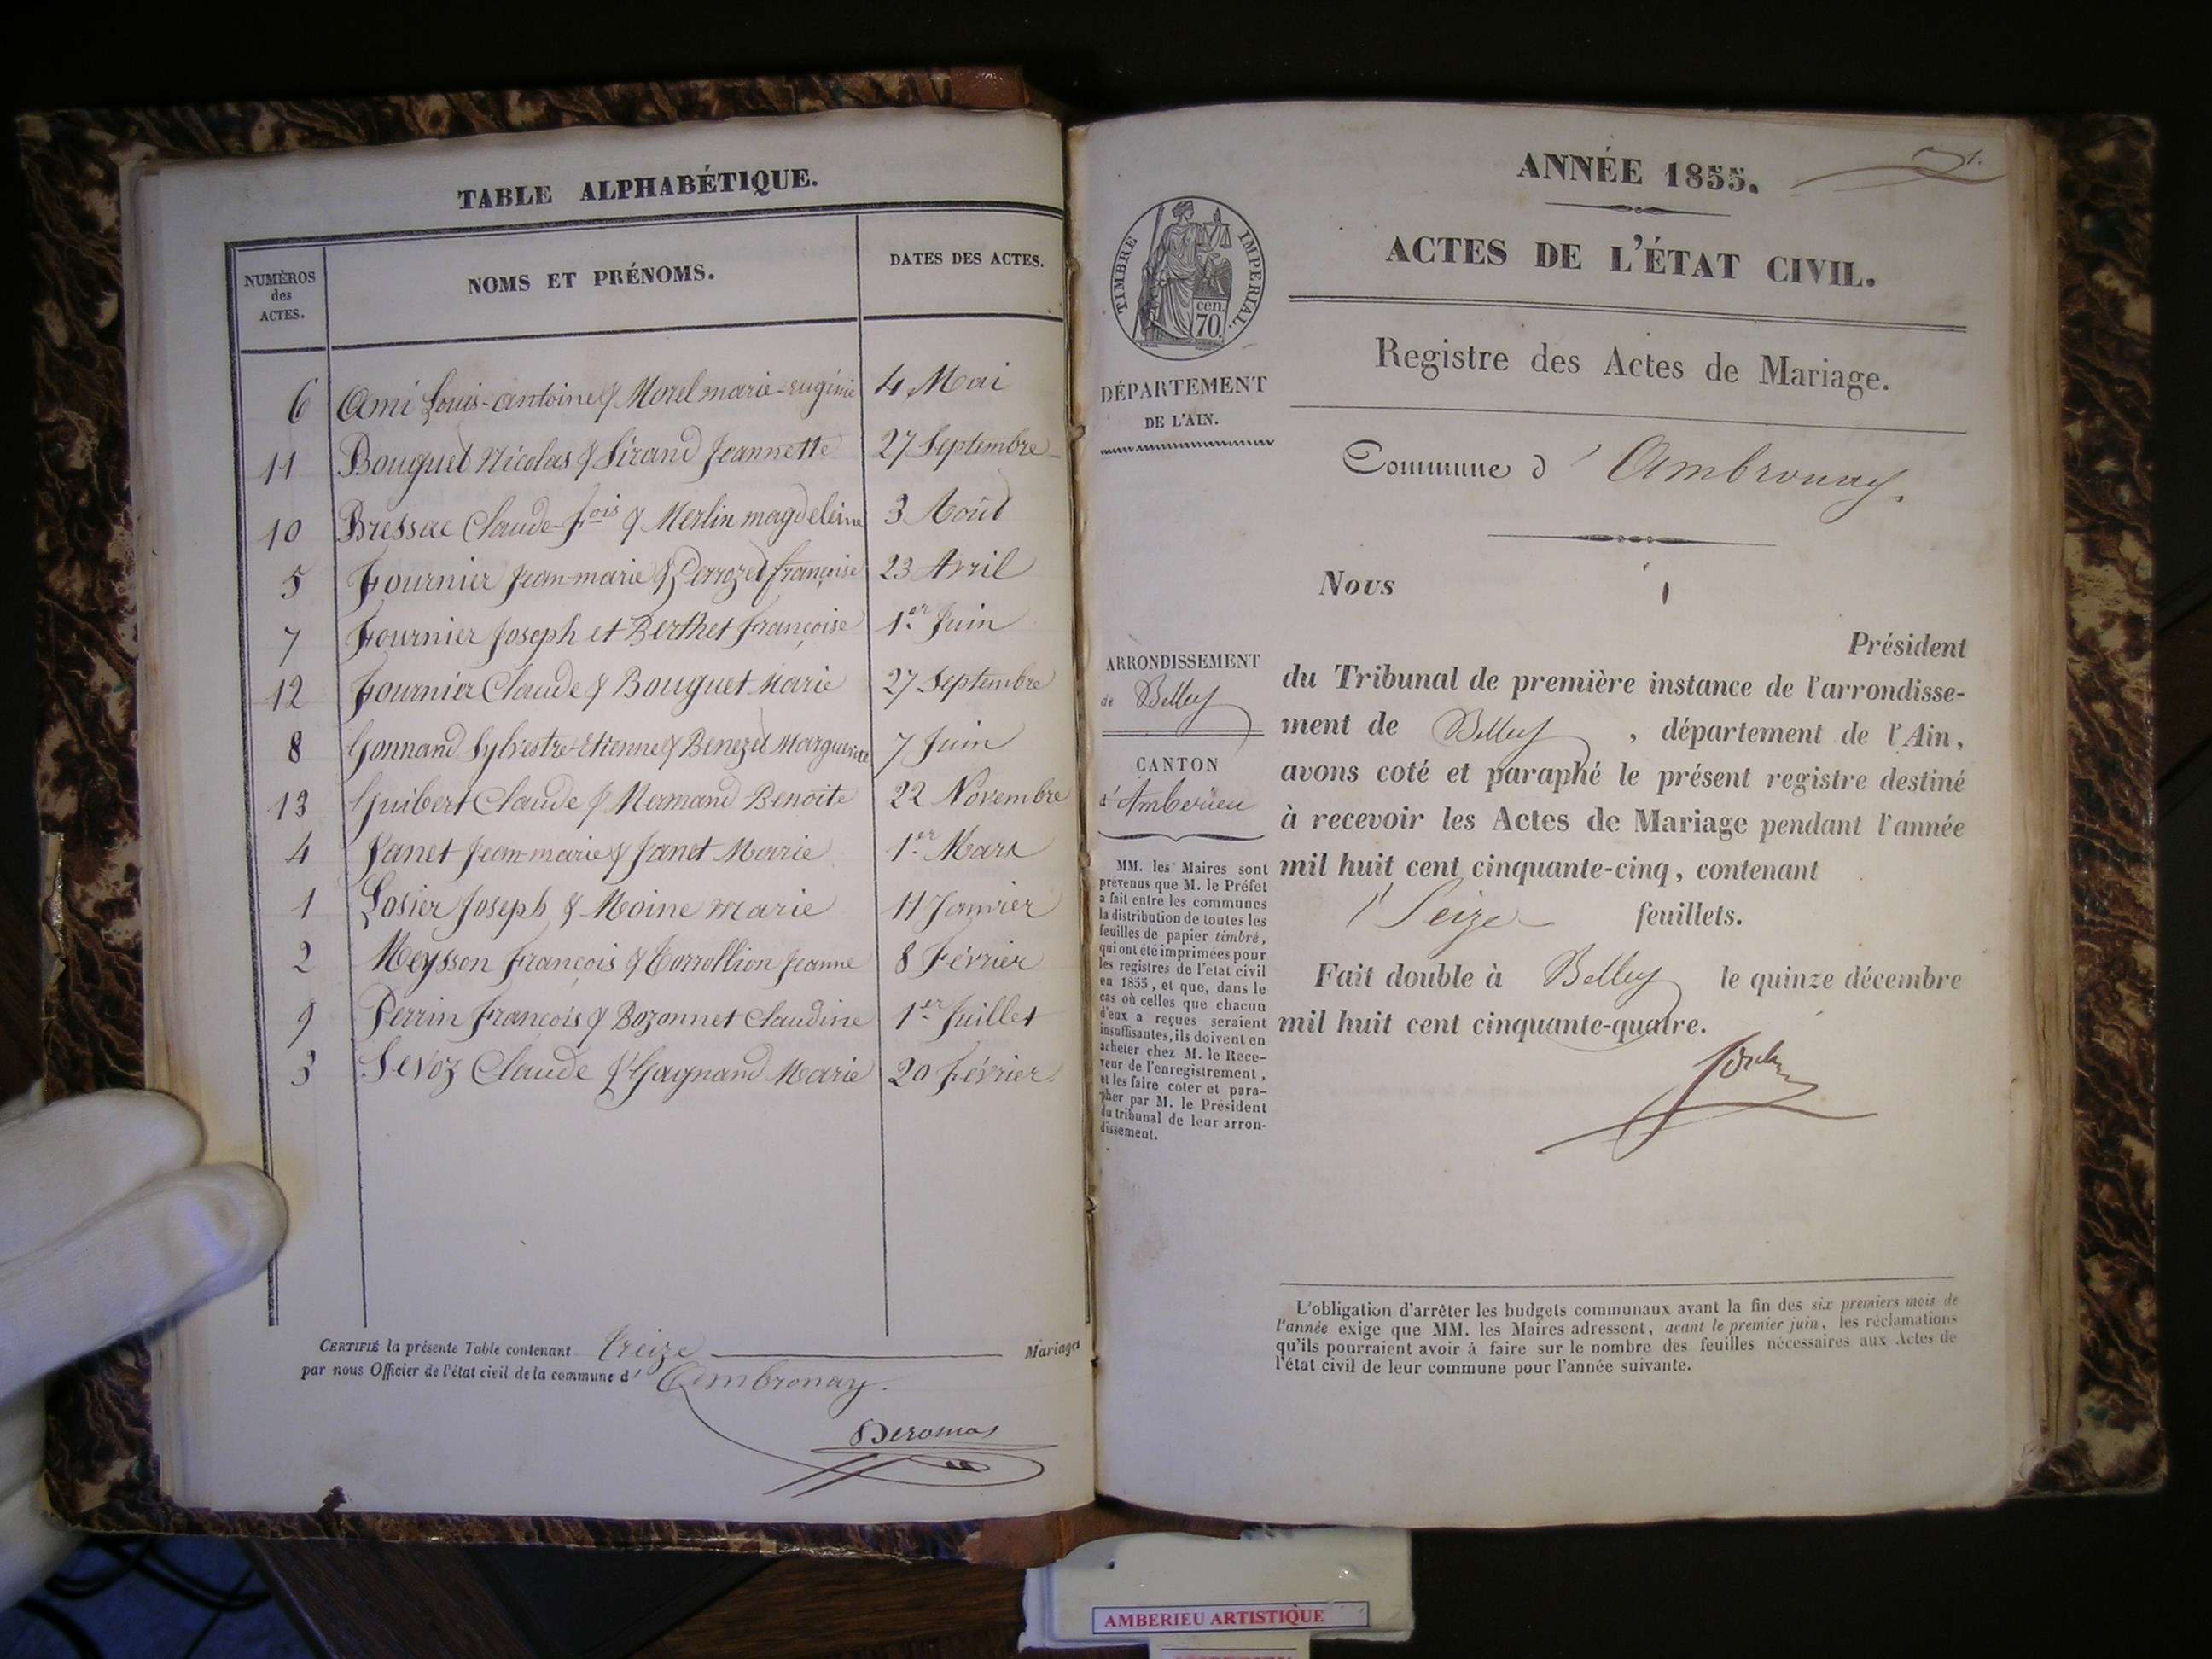 TABLE ALPHABÉTIQUE.
NUMÉROS des ACTES.
NOMS ET PRÉNOMS.
DATES DES ACTES.
6 Ami Louis-antoine & Morel marie-eugénie 4 Mai
11 Bouguet Nicolas & Sirand Jeannette 27 Septembre
10 Bressac Claude-fois & Merlin magdeleine 3 Août
5 Fournier Jean-marie & Perrozet françoise 23 Avril
7 Fournier Joseph et Berthet françoise 1er Juin
12 Fournier Claude & Bouguet Marie 27 Septembre
8 Gonnand Sylvestre-Etienne & Benezet Marguerite 7 Juin
13 Guibert Claude & Mermand Benoite 22 Novembre
4 Janet Jean-marie & Janet Marie 1er Mars
1 Losier Joseph & Moine marie 11 Janvier
2 Meysson françois & Torrollion Jeanne 8 Février
9 Perrin François & Bozonnet Claudine 1er Juillet
3 Sevoz Claude & Gagnand Marie 20 Février
CERTIFIÉ la présente Table contenant treize Mariages
par nous Officier de l'état civil de la commune d' Ambronay.
Deromas
1.
ANNÉE 1855.
ACTES DE L'ÉTAT CIVIL.
Registre des Actes de Mariage.
TIMBRE IMPERIAL.
cen.
70
DÉPARTEMENT
DE L'AIN.
Commune d'Ambronay.
Nous
Président
du Tribunal de première instance de l'arrondisse-
ment de Belley, département de l'Ain,
avons coté et paraphé le présent registre destiné
à recevoir les Actes de Mariage pendant l'année
mil huit cent cinquante-cinq, contenant
Seize feuillets.
Fait double à Belley le quinze décembre
mil huit cent cinquante-quatre.
ARRONDISSEMENT
de Belley
CANTON
d'Amberieu
MM. les Maires sont
prévenus que M. le Préfet
a fait entre les communes
la distribution de toutes les
feuilles de papier timbré,
qui ont été imprimées pour
les registres de l'état civil
en 1855, et que, dans le
cas où celles que chacun
d'eux a reçues seraient
insuffisantes, ils doivent en
acheter chez M. le Rece-
veur de l'enregistrement,
et les faire coter et para-
pher par M. le Président
du tribunal de leur arron-
dissement.
L'obligation d'arrêter les budgets communaux avant la fin des six premiers mois de
l'année exige que MM. les Maires adressent, avant le premier juin, les réclamations
qu'ils pourraient avoir à faire sur le nombre des feuilles nécessaires aux Actes de
l'état civil de leur commune pour l'année suivante.
AMBERIEU ARTISTIQUE